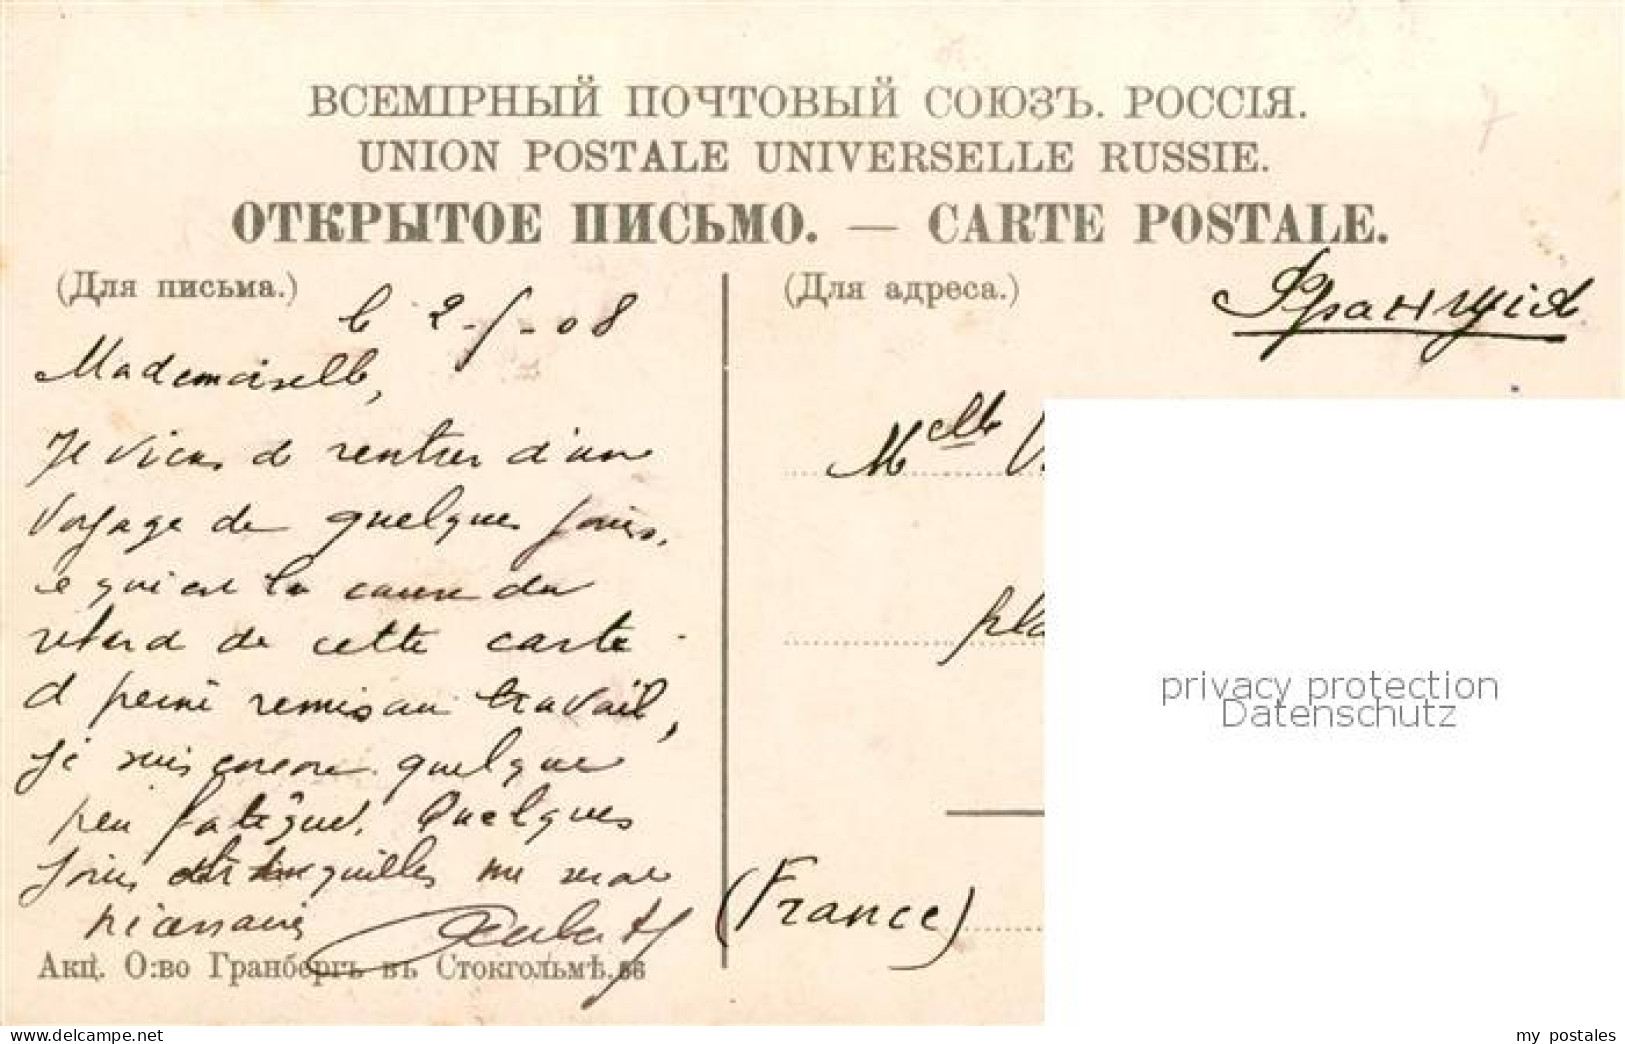 ВСЕМІРНЫЙ ПОЧТОВЫЙ СОЮЗЪ. РОССІЯ.
UNION POSTALE UNIVERSELLE RUSSIE.
ОТКРЫТОЕ ПИСЬМО. — CARTE POSTALE.
(Для письма.)
(Для адреса.)
Франція
le 2-5-08
Mademoiselle,
Je viens de rentrer d'un
voyage de quelques jours,
ce qui est la cause du
retard de cette carte.
A peine remis au travail,
je suis encore quelque
peu fatigué. Quelques
jours tranquilles me sont
nécessaires
Melle V
pla
(France)
privacy protection
Datenschutz
Акц. О:во Гранбергъ въ Стокгольмѣ. 86
my postales
www.ansichtskarten-center.de